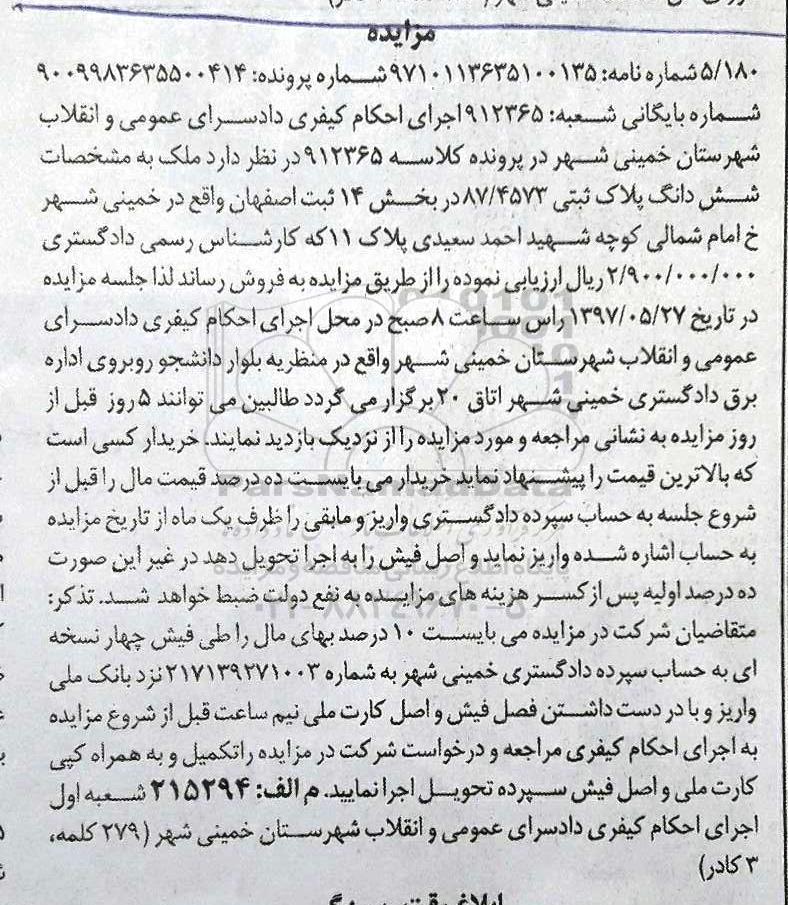 مزایده
۵/۱۸۰ شماره نامه: ۹۷۱۰۱۱۳۶۳۵۱۰۰۱۳۵ شماره پرونده: ۹۰۰۹۹۸۳۶۳۵۵۰۰۴۱۴
شماره بایگانی شعبه: ۹۱۲۳۶۵ اجرای احکام کیفری دادسرای عمومی و انقلاب
شهرستان خمینی شهر در پرونده کلاسه ۹۱۲۳۶۵ در نظر دارد ملک به مشخصات
شش دانگ پلاک ثبتی ۸۷/۴۵۷۳ در بخش ۱۴ ثبت اصفهان واقع در خمینی شهر
خ امام شمالی کوچه شهید احمد سعیدی پلاک ۱۱ که کارشناس رسمی دادگستری
۲/۹۰۰/۰۰۰/۰۰۰ ریال ارزیابی نموده را از طریق مزایده به فروش رساند لذا جلسه مزایده
در تاریخ ۱۳۹۷/۰۵/۲۷ راس ساعت ۸ صبح در محل اجرای احکام کیفری دادسرای
عمومی و انقلاب شهرستان خمینی شهر واقع در منظریه بلوار دانشجو روبروی اداره
برق دادگستری خمینی شهر اتاق ۲۰ برگزار می گردد طالبین می توانند ۵ روز قبل از
روز مزایده به نشانی مراجعه و مورد مزایده را از نزدیک بازدید نمایند. خریدار کسی است
که بالاترین قیمت را پیشنهاد نماید خریدار می بایست ده درصد قیمت مال را قبل از
شروع جلسه به حساب سپرده دادگستری واریز و مابقی را ظرف یک ماه از تاریخ مزایده
به حساب اشاره شده واریز نماید و اصل فیش را به اجرا تحویل دهد در غیر این صورت
ده درصد اولیه پس از کسر هزینه های مزایده به نفع دولت ضبط خواهد شد. تذکر:
متقاضیان شرکت در مزایده می بایست ۱۰ درصد بهای مال را طی فیش چهار نسخه
ای به حساب سپرده دادگستری خمینی شهر به شماره ۲۱۷۱۳۹۲۷۱۰۰۳ نزد بانک ملی
واریز و با در دست داشتن فصل فیش و اصل کارت ملی نیم ساعت قبل از شروع مزایده
به اجرای احکام کیفری مراجعه و درخواست شرکت در مزایده راتکمیل و به همراه کپی
کارت ملی و اصل فیش سپرده تحویل اجرا نمایید. م الف: ۲۱۵۲۹۴ شعبه اول
اجرای احکام کیفری دادسرای عمومی و انقلاب شهرستان خمینی شهر (۲۷۹ کلمه،
۳ کادر)
ParsNamadData